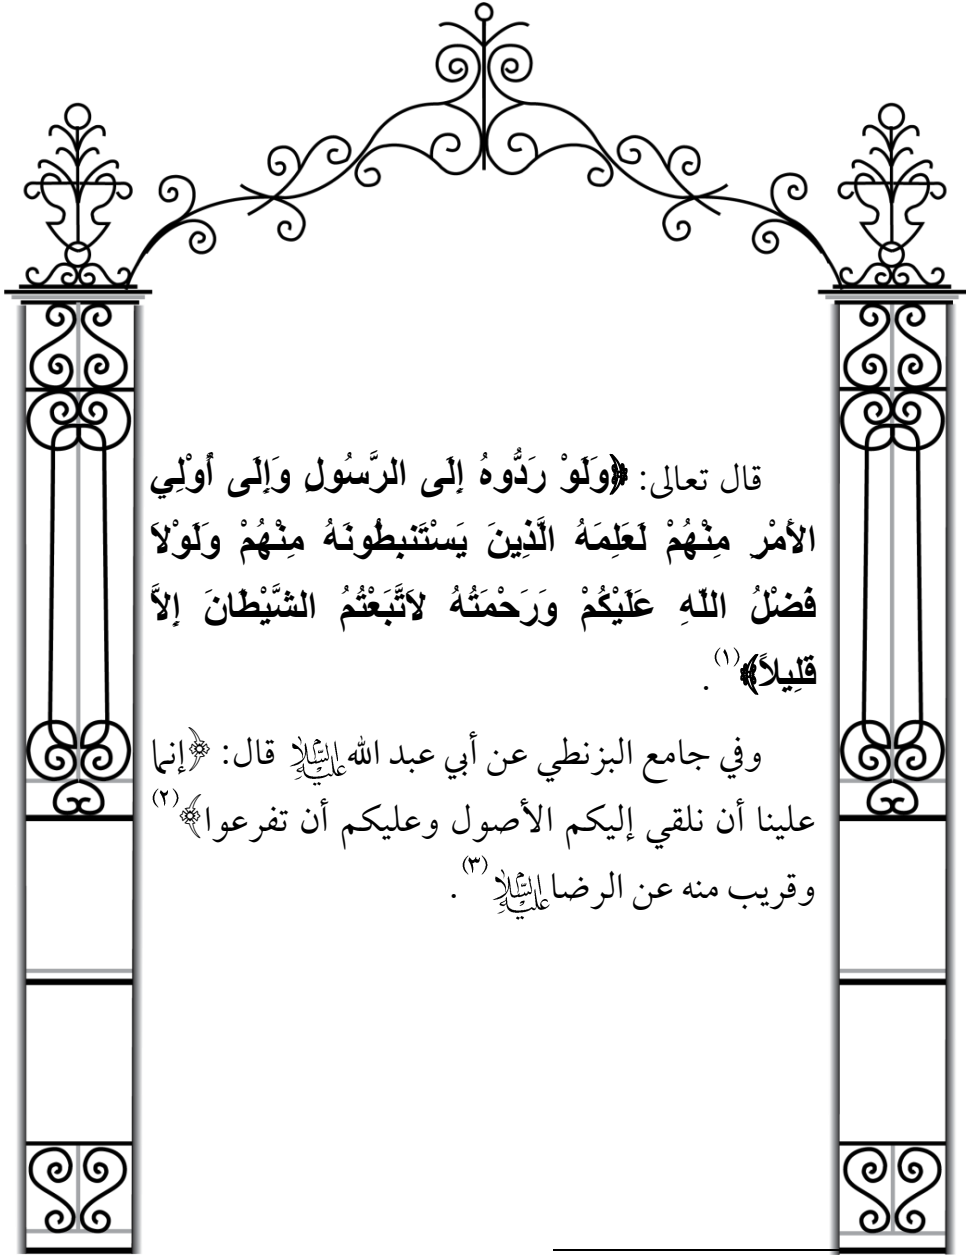 قال تعالى: ﴿وَلَوْ رَدُّوهُ إِلَى الرَّسُولِ وَإِلَى أُوْلِي
الأمْرِ مِنْهُمْ لَعَلِمَهُ الَّذِينَ يَسْتَنبِطُونَهُ مِنْهُمْ وَلَوْلاَ
فَضْلُ اللّهِ عَلَيْكُمْ وَرَحْمَتُهُ لاَتَّبَعْتُمُ الشَّيْطَانَ إِلاَّ
قَلِيلاً﴾(١).
وفي جامع البزنطي عن أبي عبد الله عليه السلام قال: ﴿إنما
علينا أن نلقي إليكم الأصول وعليكم أن تفرعوا﴾(٢)
وقريب منه عن الرضا عليه السلام(٣).